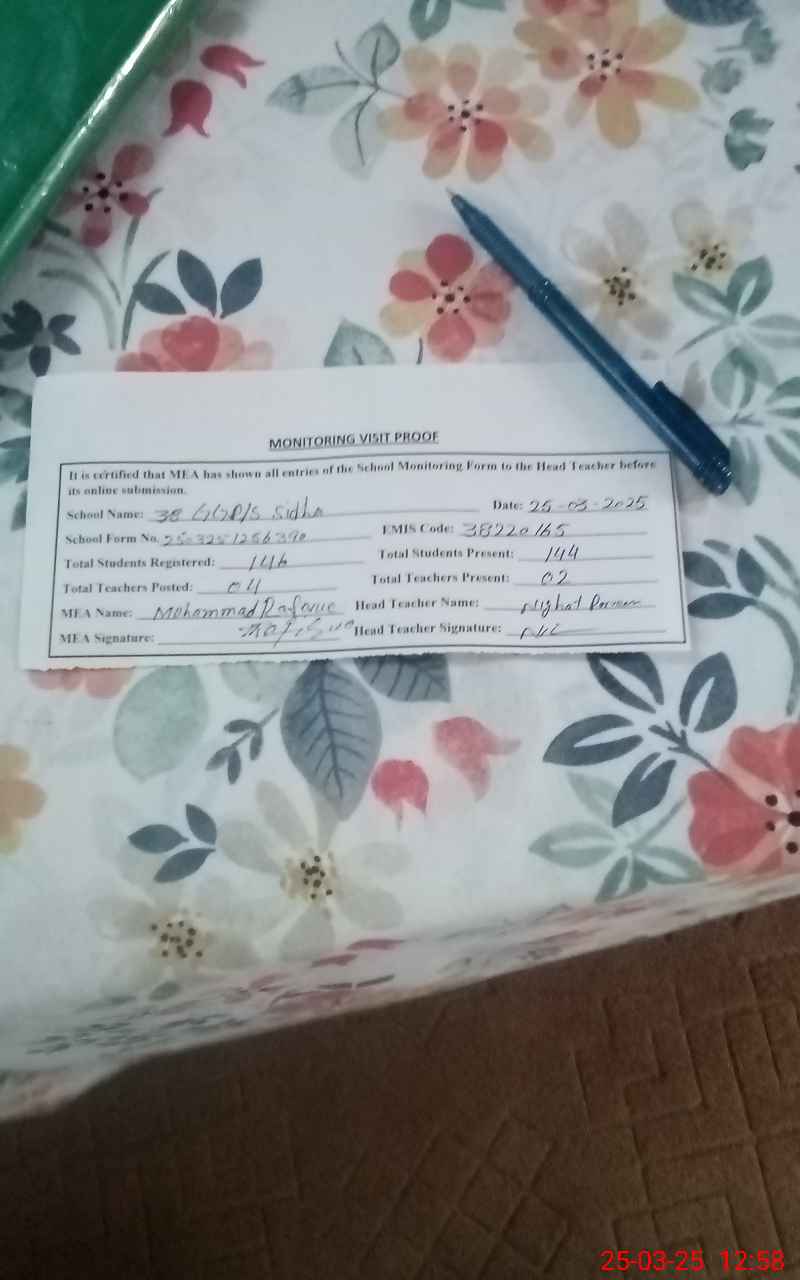 MONITORING VISIT PROOF
It is certified that MEA has shown all entries of the School Monitoring Form to the Head Teacher before
its online submission.
School Name: 38 GGP/S Sidha Date: 25-03-2025
School Form No. 2503251256390 EMIS Code: 38220165
Total Students Registered: 146 Total Students Present: 144
Total Teachers Posted: 04 Total Teachers Present: 02
MEA Name: Mohammad Rafique Head Teacher Name: Nighat
MEA Signature: Head Teacher Signature:
25-03-25 12:58